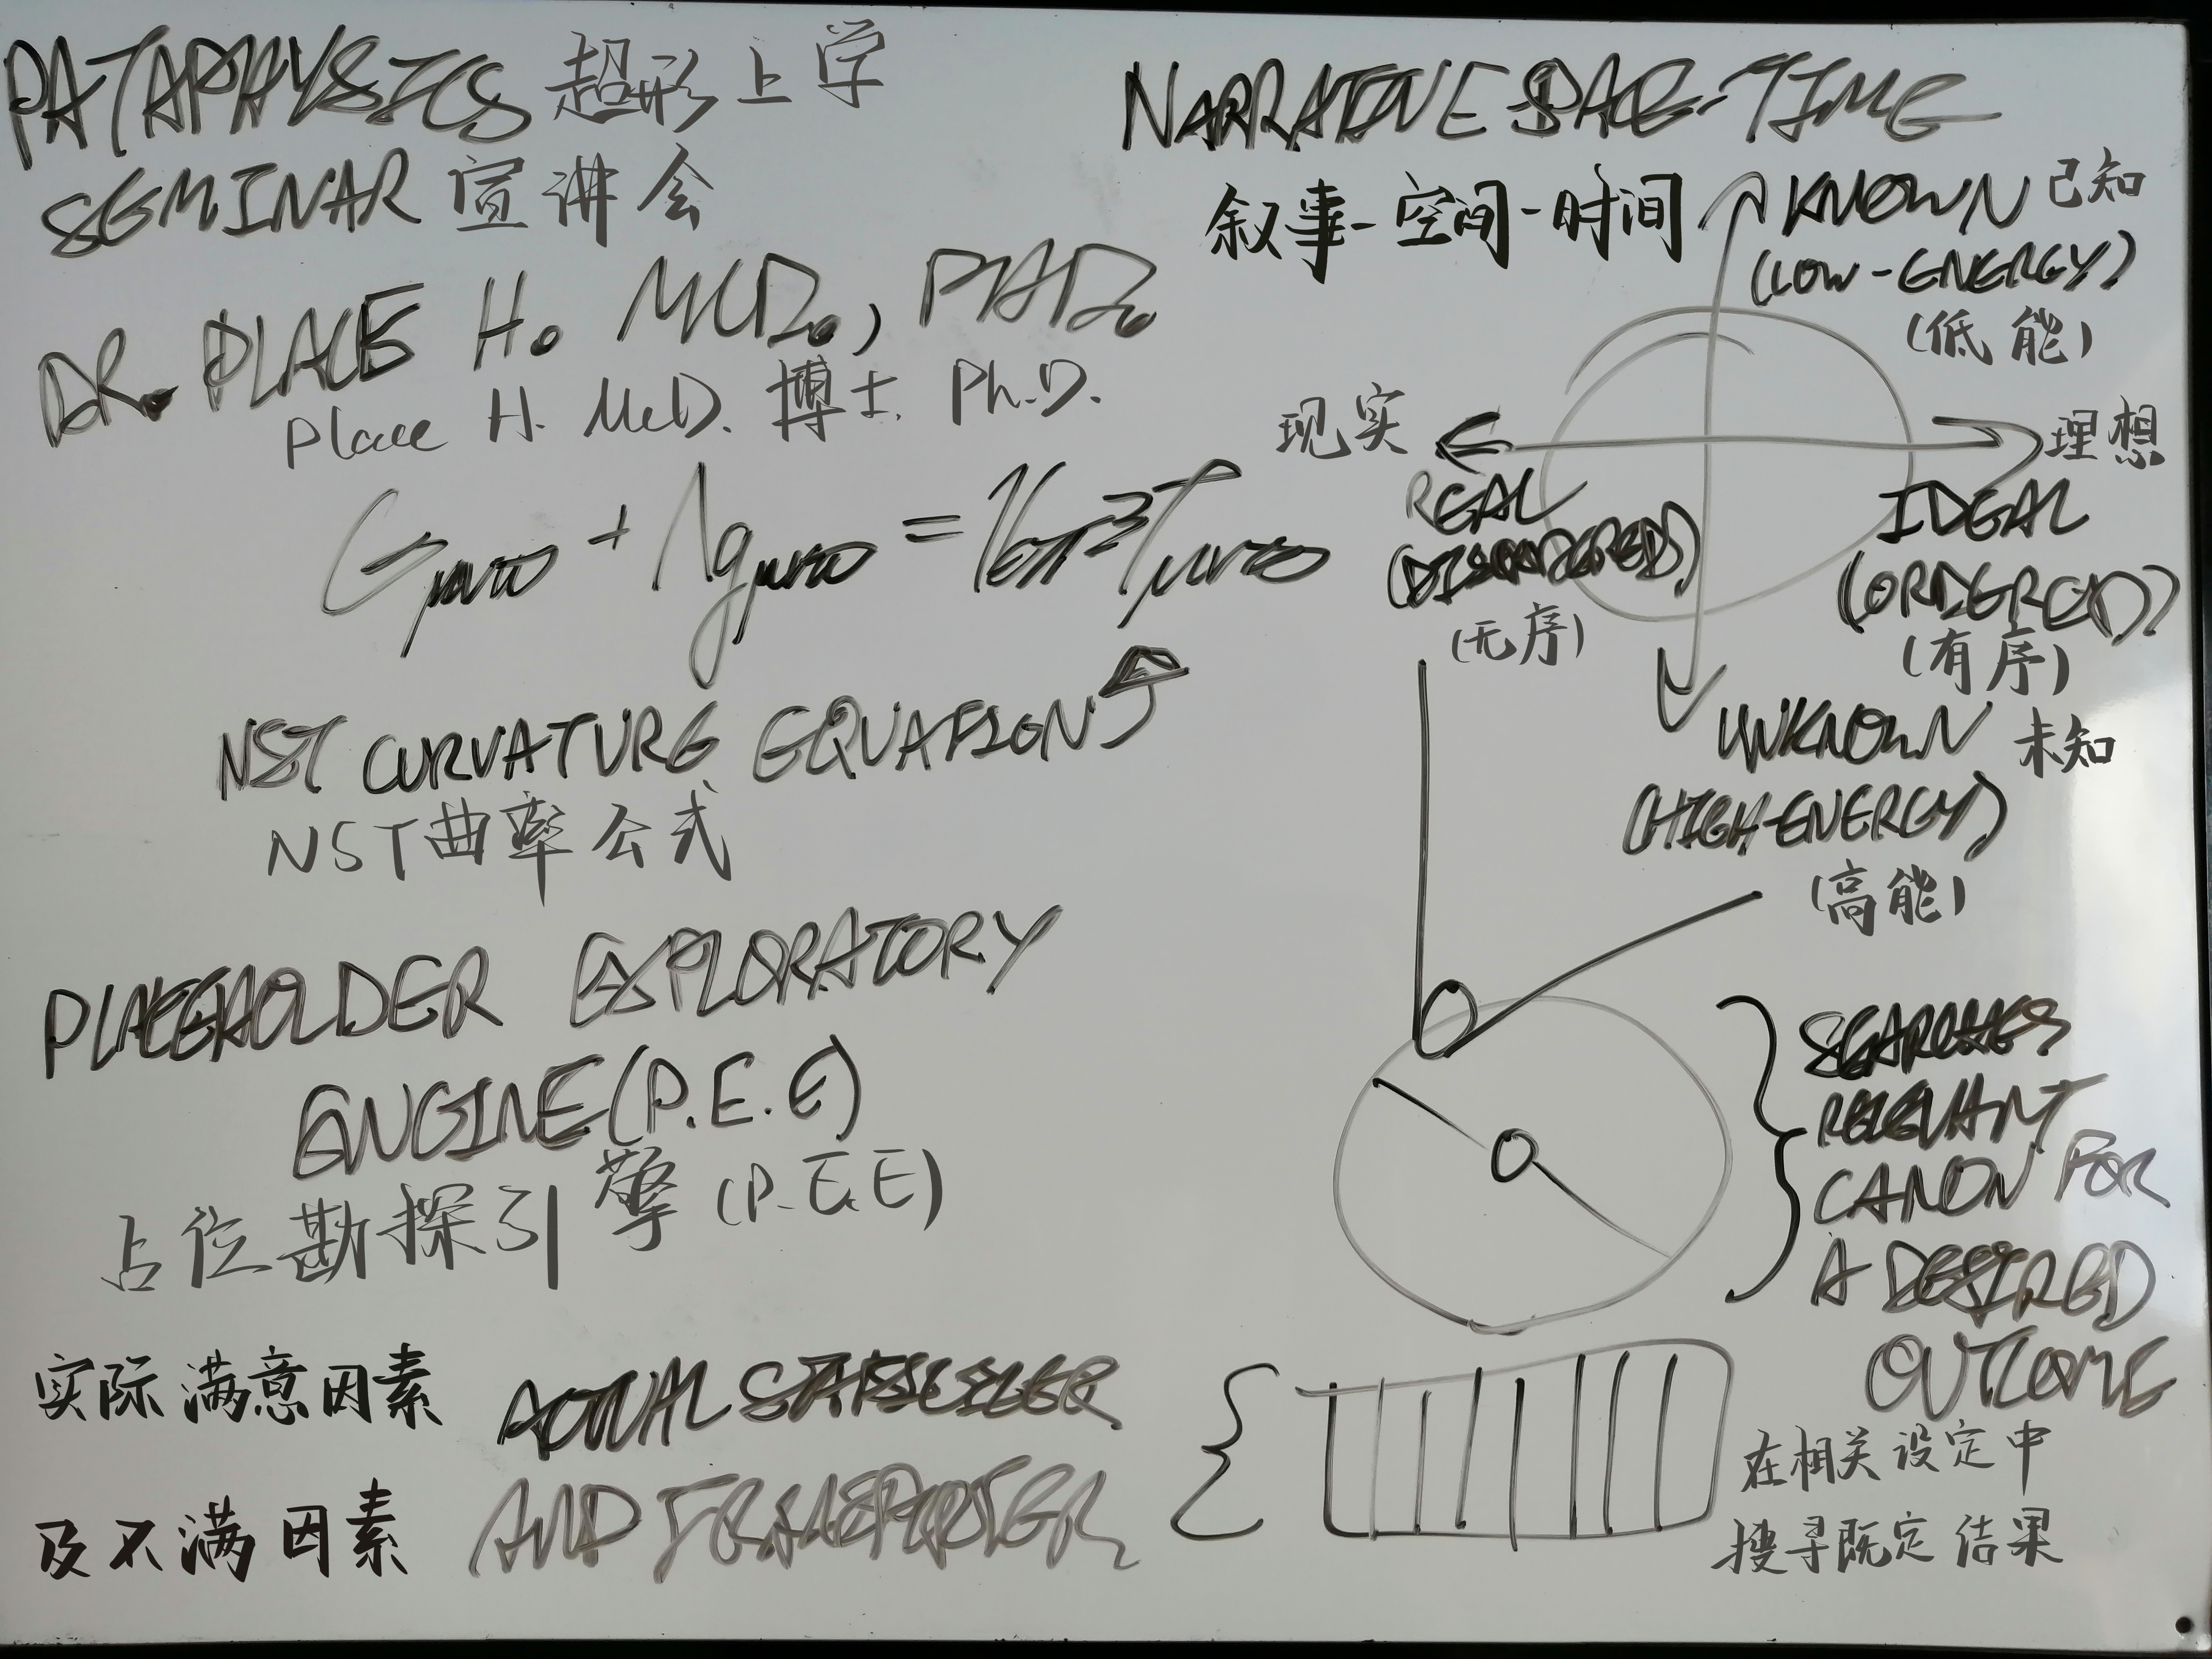 PATAPHYSICS 超形上学
SEMINAR 宣讲会
DR. PLACE H. MCD., PHD.
Place H. McD. 博士. Ph.D.
NST CURVATURE EQUATION
NST曲率公式
PLACEHOLDER EXPLORATORY
ENGINE (P.E.E)
占位勘探引擎 (P.E.E)
实际满意因素
ACTUAL
及不满因素
AND
NARRATIVE SPACE-TIME
叙事-空间-时间
KNOWN 已知
(LOW-ENERGY)
(低能)
现实
理想
REAL
IDEAL
(DISORDERED)
(ORDERED)
(无序)
(有序)
UNKNOWN 未知
(HIGH-ENERGY)
(高能)
SEARCHES
RELEVANT
CANON FOR
A DESIRED
OUTCOME
在相关设定中
搜寻既定结果